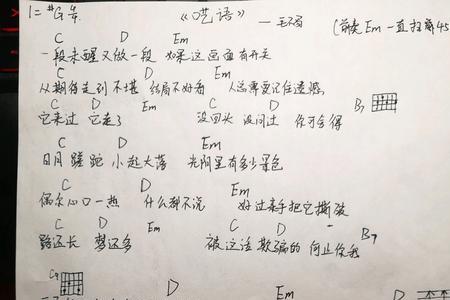 1=#G 《呓语》 —毛不易 (前奏Em一直扫离45
C D Em
一段未醒又做一段 如果这画面有开关
C D Em
从期待走到不堪 结局不好看 人总需要记住遗憾
C D Em C D B7
它来过 它走了 没回头 没问过 你可舍得
C D Em
日月蹉跎 小起大落 光阴里有多少景色
C D Em
偶尔心口一热 什么都不说 好过亲手把它撕破
C D Em C D B7
路还长 梦还多 被这话欺骗的 何止你我
C9 D Em D